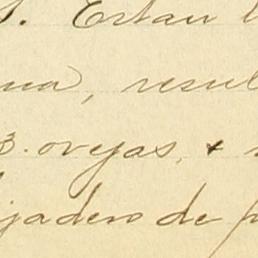 s. Estan l
ua, resul
3. ovejas, & 
ijadero de p